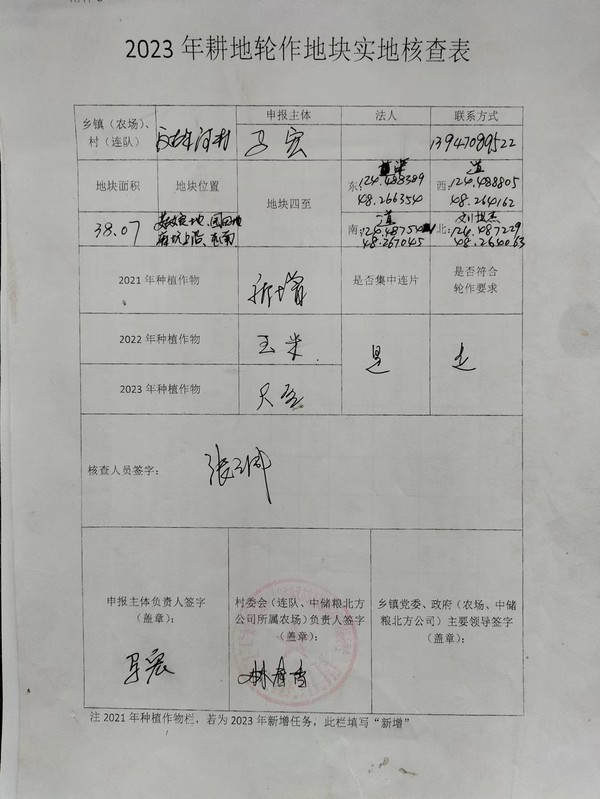 2023 年耕地轮作地块实地核查表
乡镇（农场）、
村（连队）
申报主体
法人
联系方式
马宏
13947089522
地块面积
地块位置
地块四至
东:124.488389
48.266354
西:道
124.488805
48.264162
38.07
南:道
124.48754
48.267045
北:
124.487229
48.264063
2021 年种植作物
新增
是否集中连片
是否符合
轮作要求
2022 年种植作物
玉米
是
是
2023 年种植作物
大豆
核查人员签字：
申报主体负责人签字
（盖章）：
马宏
村委会（连队、中储粮北方
公司所属农场）负责人签字
（盖章）：
乡镇党委、政府（农场、中储
粮北方公司）主要领导签字
（盖章）：
注 2021 年种植作物栏，若为 2023 年新增任务，此栏填写“新增”